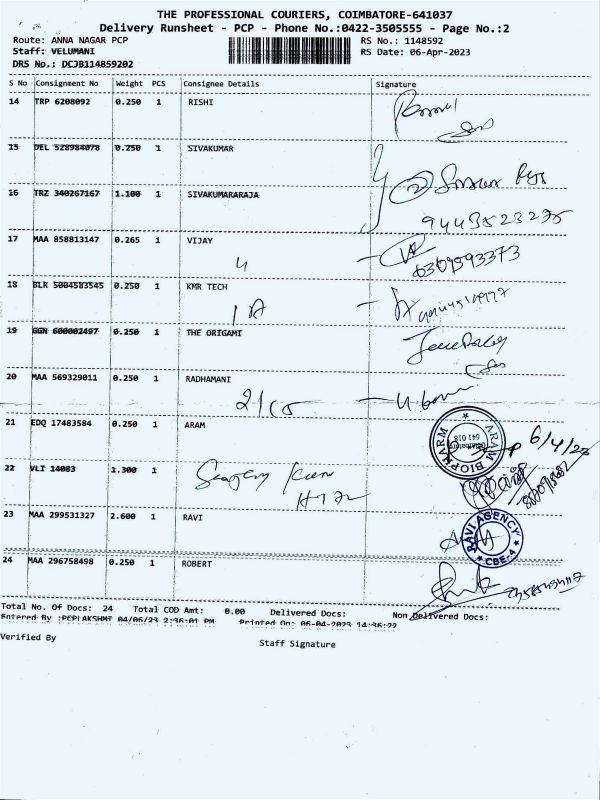 THE PROFESSIONAL COURIERS, COIMBATORE-641037
Delivery Runsheet - PCP - Phone No.:0422-3505555 - Page No.:2
Route: ANNA NAGAR PCP RS No.: 1148592
Staff: VELUMANI RS Date: 06-Apr-2023
DRS No.: DCJB114859202
S No Consignment No Weight PCS Consignee Details Signature
14 TRP 6208092 0.250 1 RISHI
15 DEL 528984078 0.250 1 SIVAKUMAR
16 TRZ 340267167 1.100 1 SIVAKUMARARAJA
9443523235
17 MAA 858813147 0.265 1 VIJAY
4
6309593373
18 BLR 5004583545 0.250 1 KMR TECH
1A
19 GGN 600002497 0.250 1 THE ORIGAMI
20 MAA 569329011 0.250 1 RADHAMANI
21 EDQ 17483584 0.250 1 ARAM
ARAM BIOPHARM
641 018
6/4/23
22 VLI 14083 1.300 1
23 MAA 299531327 2.600 1 RAVI
RAVI AGENCY
CBE-4
24 MAA 296758498 0.250 1 ROBERT
Total No. Of Docs: 24 Total COD Amt: 0.00 Delivered Docs: Non Delivered Docs:
Entered By :PCPLAKSHMI 04/06/23 2:36:01 PM Printed On: 06-04-2023 14:36:22
Verified By Staff Signature